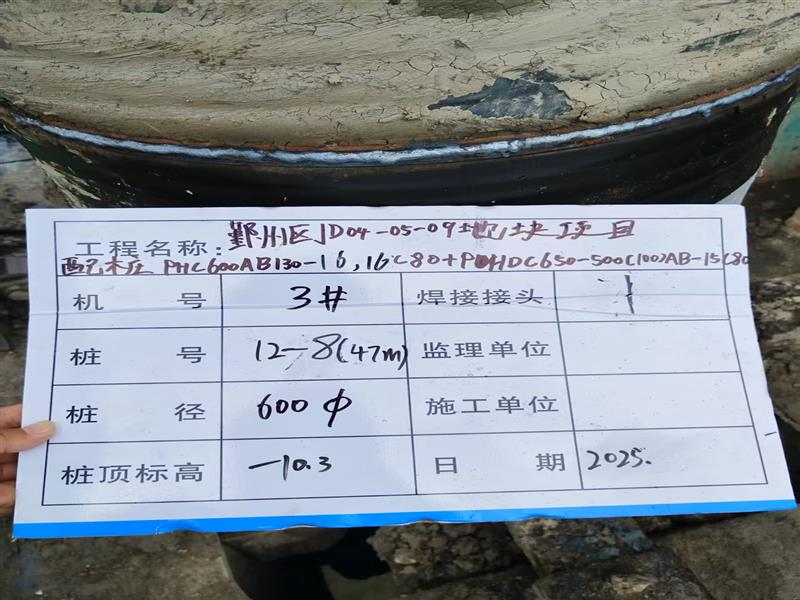 工程名称: 鄞州区JD04-05-09地块项目
配桩 PHC600AB130-16,16 C80+PHDC650-500(100)AB-15C80
机 号 3# 焊接接头 1
桩 号 12-8(47m) 监理单位
桩 径 600 φ 施工单位
桩顶标高 -10.3 日 期 2025.